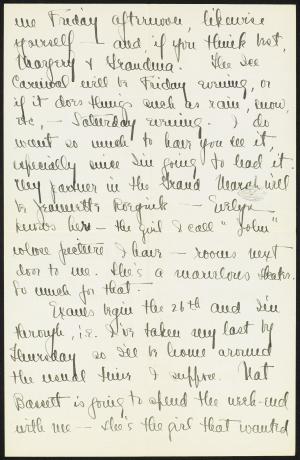 me Friday afternoon, likewise
yourself — and, if you think best,
Margery & Grandma. The Ice
Carnival will be Friday evening, or
if it does things such as rain, snow,
etc, — Saturday evening. I do
want so much to have you see it,
especially since I'm going to lead it.
My partner in the Grand March will
be Jeannette — Evelyn
knows her — the girl I call "John"
whose picture I have — rooms next
door to me. She's a marvelous skater.
So much for that.
Exams begin the 26th and I'm
through, i.e. I've taken my last by
Thursday so I'll be home around
the usual time I suppose. Nat
Bassett is going to spend the week-end
with me — she's the girl that wanted